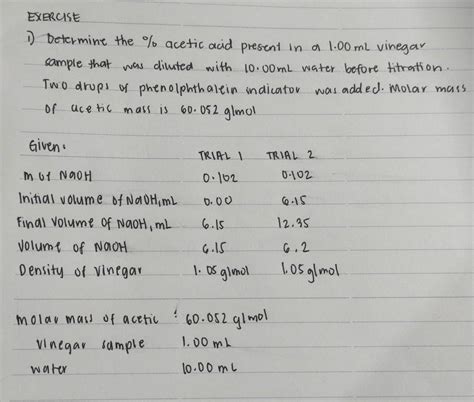 EXERCISE
1) Determine the % acetic acid present in a 1.00 mL vinegar
sample that was diluted with 10.00mL water before titration.
Two drops of phenolphthalein indicator was added. Molar mass
of acetic mass is 60.052 glmol
Given:
TRIAL 1 TRIAL 2
m of NaOH 0.102 0.102
Initial volume of NaOH, mL 0.00 6.15
Final Volume of NaOH, mL 6.15 12.35
Volume of NaOH 6.15 6.2
Density of vinegar 1.05 glmol 1.05 glmol
molar mass of acetic : 60.052 glmol
vinegar sample 1.00 mL
water 10.00 mL